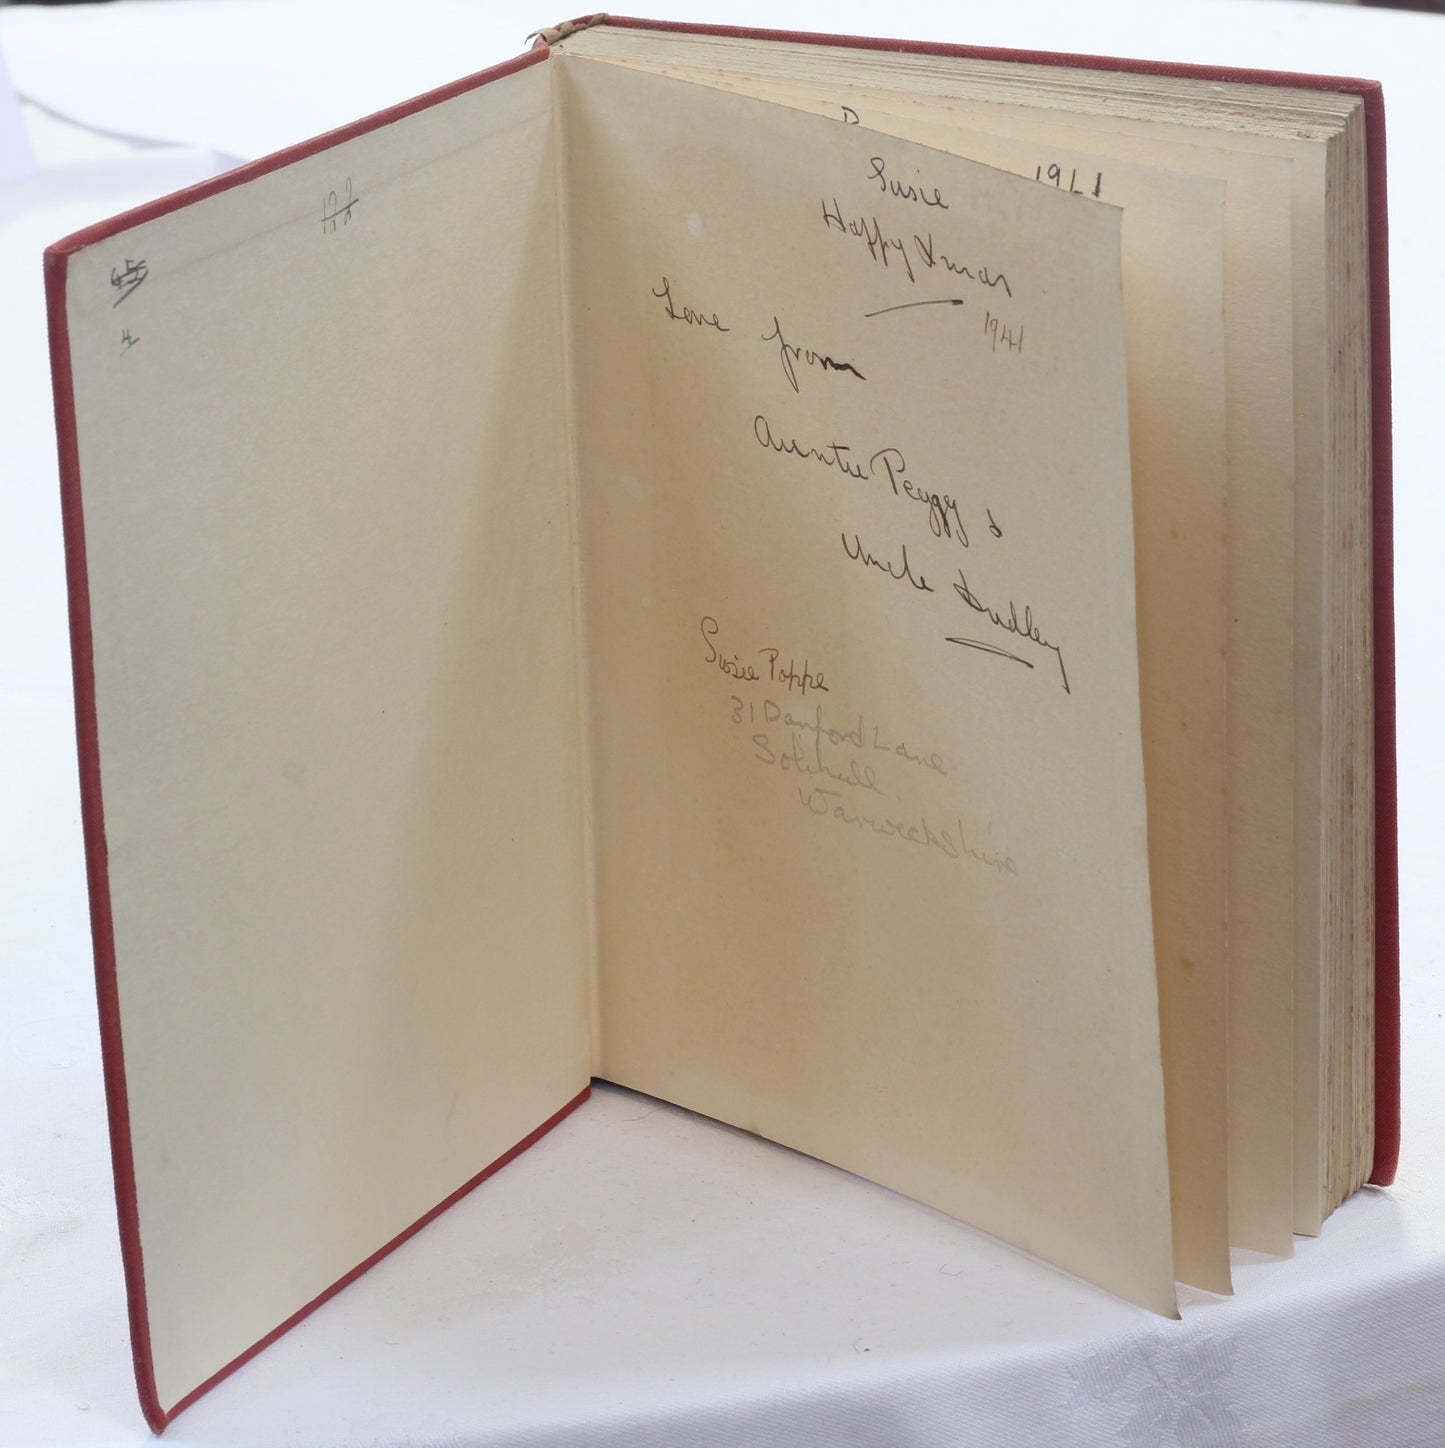 4
Susie
Happy Xmas
1941
Love from
Auntie Peggy &
Uncle Dudley
Susie Poppe
31 Danford Lane
Solihull
Warwickshire
1941